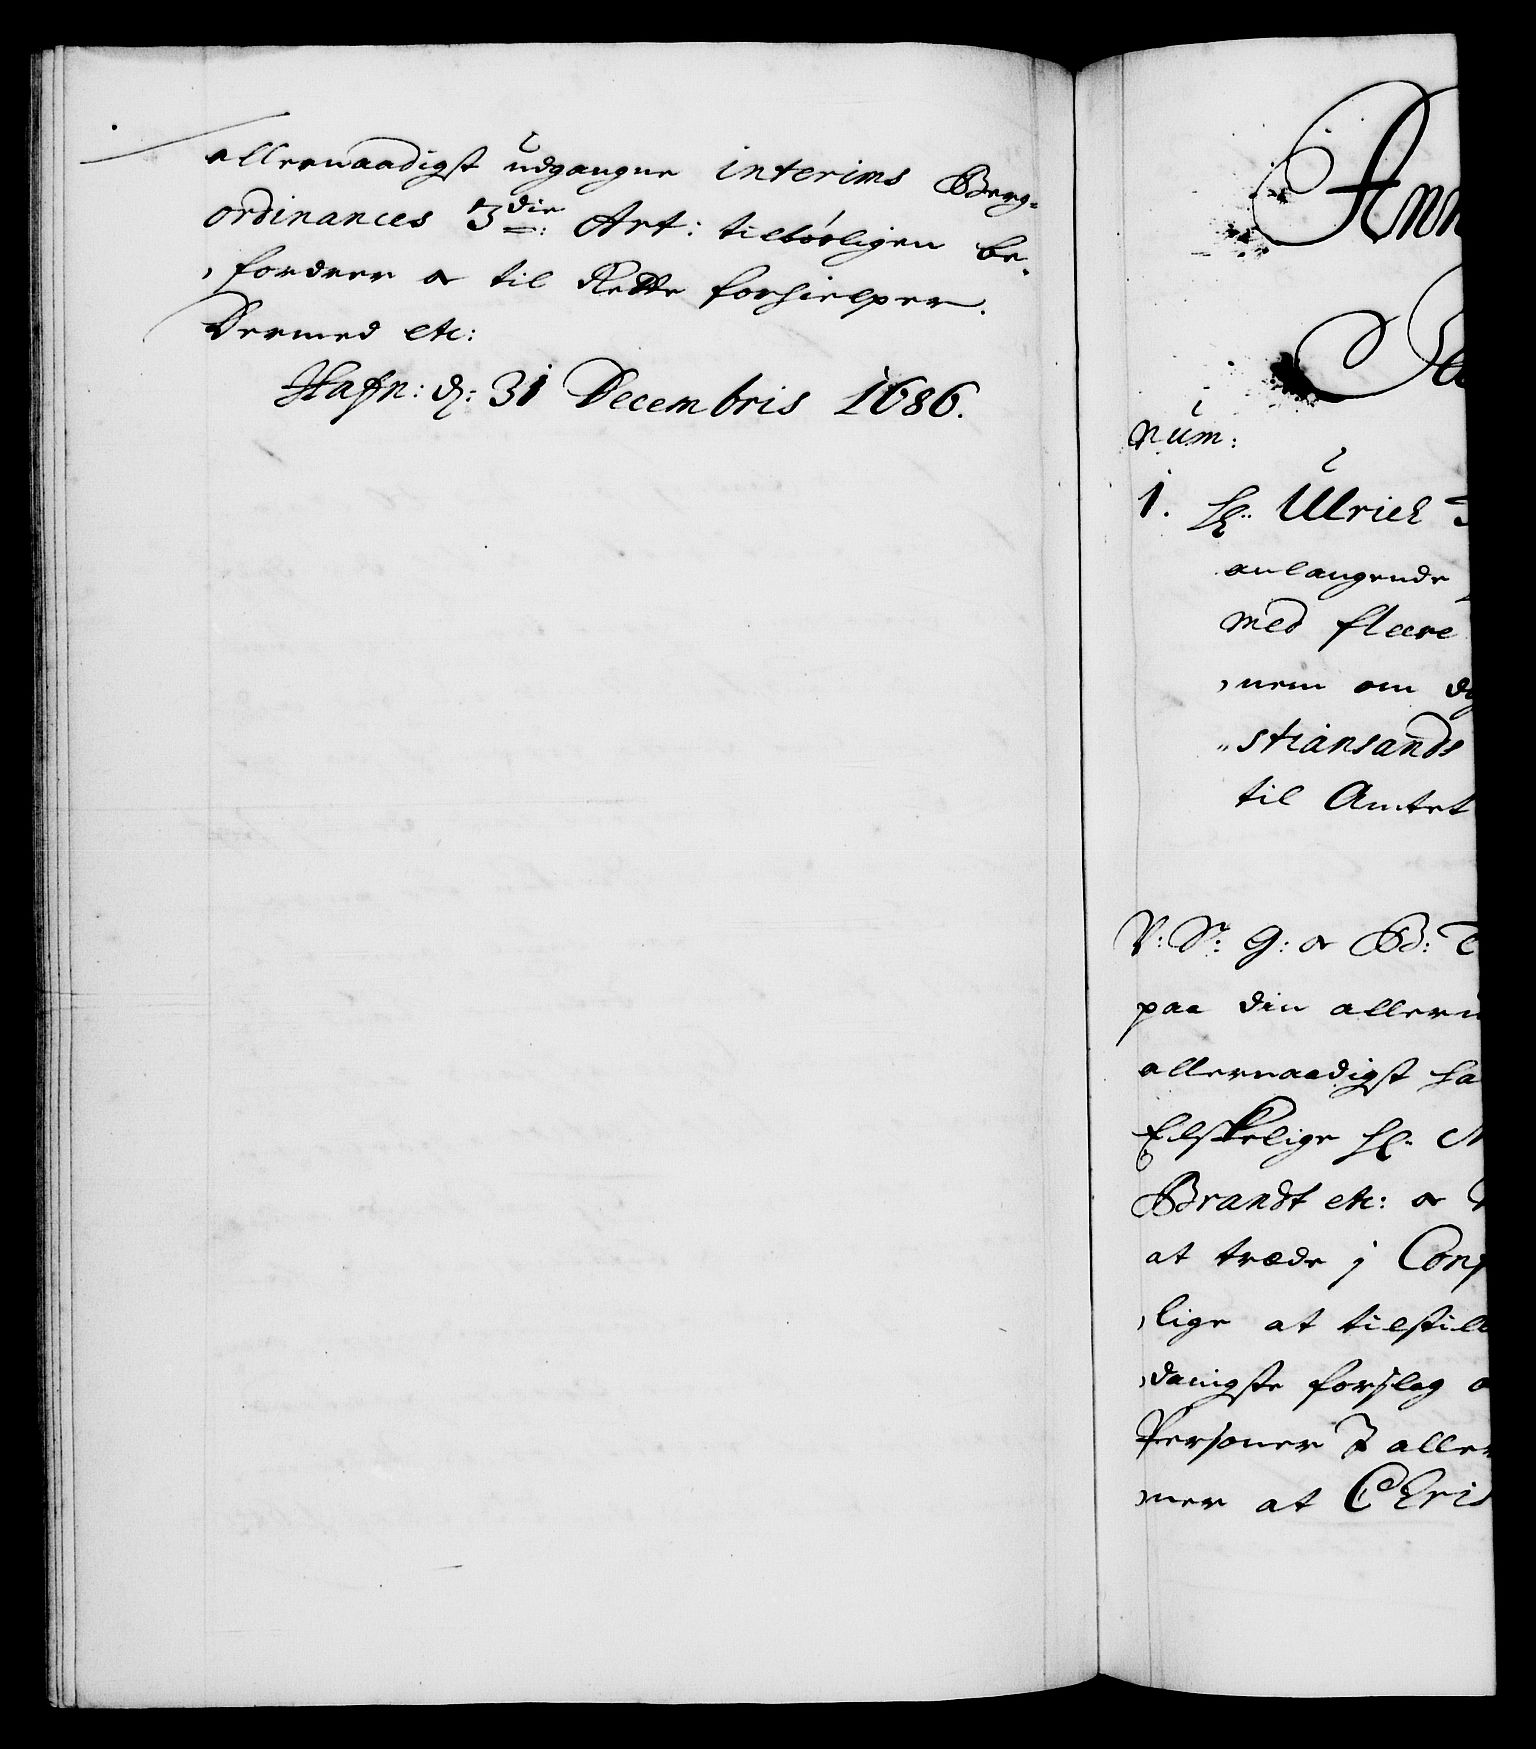 allernaadigst udgangne interims Berg-
ordinances 3die Art: tilbørligen be-
fordrer og til Rette forhielper.
Dermed etc:
Hafn: d: 31 Decembris 1686.
Ann
Num:
1. Hr. Ulrich
anlangende
med fleere
nem om
stiansands
til Amtet
V: Sr: G: og Bd:
paa din alleru
allernaadigst ha
Elskelige Hr.
Brandt etc: og
at træde j Conf
lige at tilstill
danigste forslag
Personer aller
ner at Chris